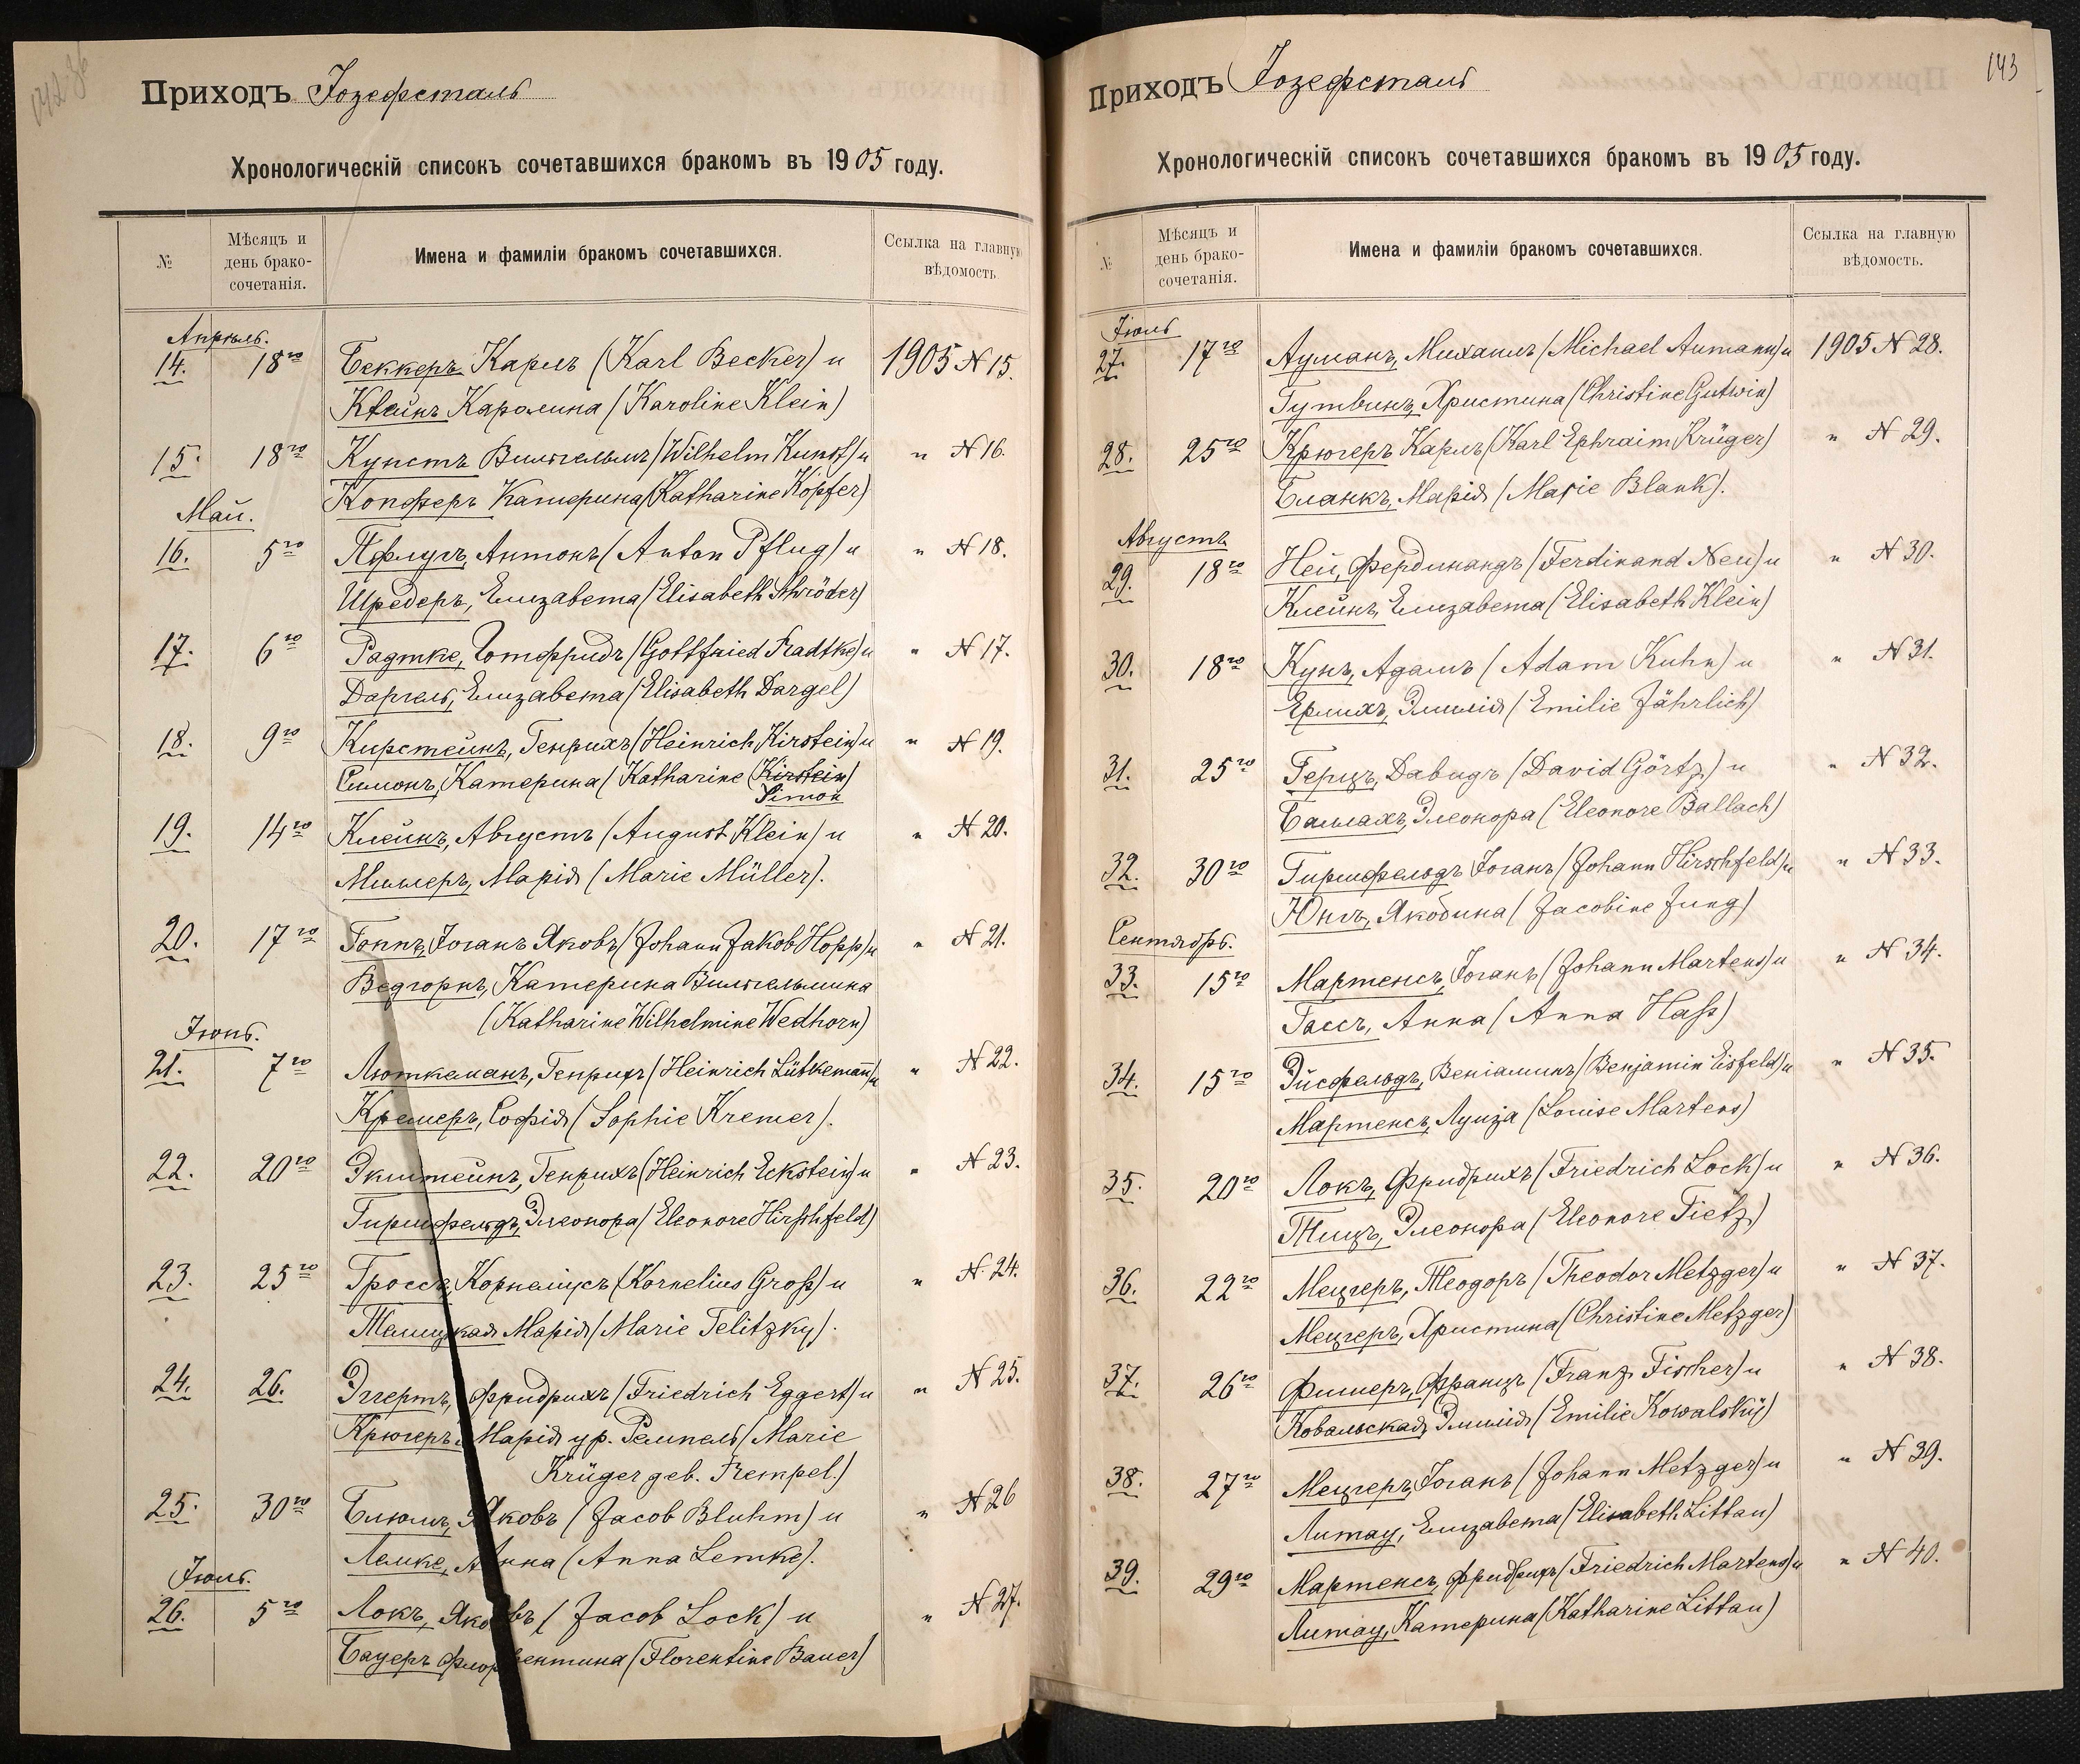 Приходъ Іозефсталь
Хронологическій списокъ сочетавшихся бракомъ въ 1905 году.
№
Мѣсяцъ и день брако-сочетанія.
Имена и фамиліи бракомъ сочетавшихся.
Ссылка на главную вѣдомость
Апрѣль.
14. 18го Беккеръ Карлъ (Karl Becker) и 1905 № 15.
Клейнъ Каролина (Karoline Klein)
15. 18го Кунстъ Вильгельмъ (Wilhelm Kunst) и " № 16.
Копферъ Катерина (Katharine Köpfer)
Май.
16. 5го Пфлугъ, Антонъ (Anton Pflug) и " № 18.
Шредеръ, Елизавета (Elisabeth Schröder)
17. 6го Радтке, Готфридъ (Gottfried Radtke) и " № 17.
Даргель, Елизавета (Elisabeth Dargel)
18. 9го Кирстейнъ, Генрихъ (Heinrich Kirstein) и " № 19.
Симонъ, Катерина (Katharine (Kirstein)
Simon
19. 14го Клейнъ, Августъ (August Klein) и " № 20.
Миллеръ, Марія (Marie Müller).
20. 17го Гоппъ, Іоганъ Яковъ (Johann Jakob Hopp) и " № 21.
Ведгорнъ, Катерина Вильгельмина
(Katharine Wilhelmine Wedhorn)
Іюнь.
21. 7го Люткеманъ, Генрихъ (Heinrich Lütkemañ) и " № 22.
Кремеръ, Софія (Sophie Kremer).
22. 20го Экштейнъ, Генрихъ (Heinrich Eckstein) и " № 23.
Гиршфельдъ, Элеонора (Eleonore Hirschfeld)
23. 25го Гроссъ, Корнеліусъ (Kornelius Groß) и " № 24.
Телицкая Марія (Marie Telitzky).
24. 26. Эггертъ, Фридрихъ (Friedrich Eggert) и " № 25.
Крюгеръ, Марія ур. Ремпель (Marie
Krüger geb. Rempel.)
25. 30го Блюмъ, Яковъ (Jacob Bluhm) и " № 26
Лемке, Анна (Anna Lemke).
Іюль.
26. 5го Локъ, Яковъ (Jacob Lock) и " № 27.
Бауеръ Флорентина (Florentine Bauer)
143
Приходъ Іозефсталь
Хронологическій списокъ сочетавшихся бракомъ въ 1905 году.
№
Мѣсяцъ и день брако-сочетанія.
Имена и фамиліи бракомъ сочетавшихся.
Ссылка на главную вѣдомость.
Іюль
27. 17го Ауманъ, Михаилъ (Michael Aumann) и 1905 № 28.
Гутвинъ, Христина (Christine Gutwin)
28. 25го Крюгеръ Карлъ (Karl Ephraim Krüger) " № 29.
Бланкъ, Марія (Marie Blank).
Августъ
29. 18го Ней, Фердинандъ (Ferdinand Neu) и " № 30.
Клейнъ, Елизавета (Elisabeth Klein)
30. 18го Кунъ, Адамъ (Adam Kuhn) и " № 31.
Ерлихъ, Эмилія (Emilie Jährlich)
31. 25го Герцъ, Давидъ (David Görtz) и " № 32.
Баллахъ, Элеонора (Eleonore Ballach)
32. 30го Гиршфельдъ Іоганъ (Johann Hirschfeld) и " № 33.
Юнгъ, Якобина (Jacobine Jung)
Сентябрь.
33. 15го Мартенсъ, Іоганъ (Johann Martens) и " № 34.
Гассъ, Анна (Anna Haß)
34. 15го Эйсфельдъ, Веніаминъ (Benjamin Eisfeld) и " № 35.
Мартенсъ, Луиза (Louise Martens)
35. 20го Локъ, Фридрихъ (Friedrich Lock) и " № 36.
Тицъ, Элеонора (Eleonore Tietz)
36. 22го Мецгеръ, Теодоръ (Theodor Metzger) и " № 37.
Мецгеръ, Христина (Christine Metzger)
37. 26го Фишеръ, Францъ (Franz Fischer) и " № 38.
Ковальская, Эмилія (Emilie Kowalsky)
38. 27го Мецгеръ, Іоганъ (Johann Metzger) и " № 39.
Литау, Елизавета (Elisabeth Littau)
39. 29го Мартенсъ, Фридрихъ (Friedrich Martens) и " № 40.
Литау, Катерина (Katharine Littau)